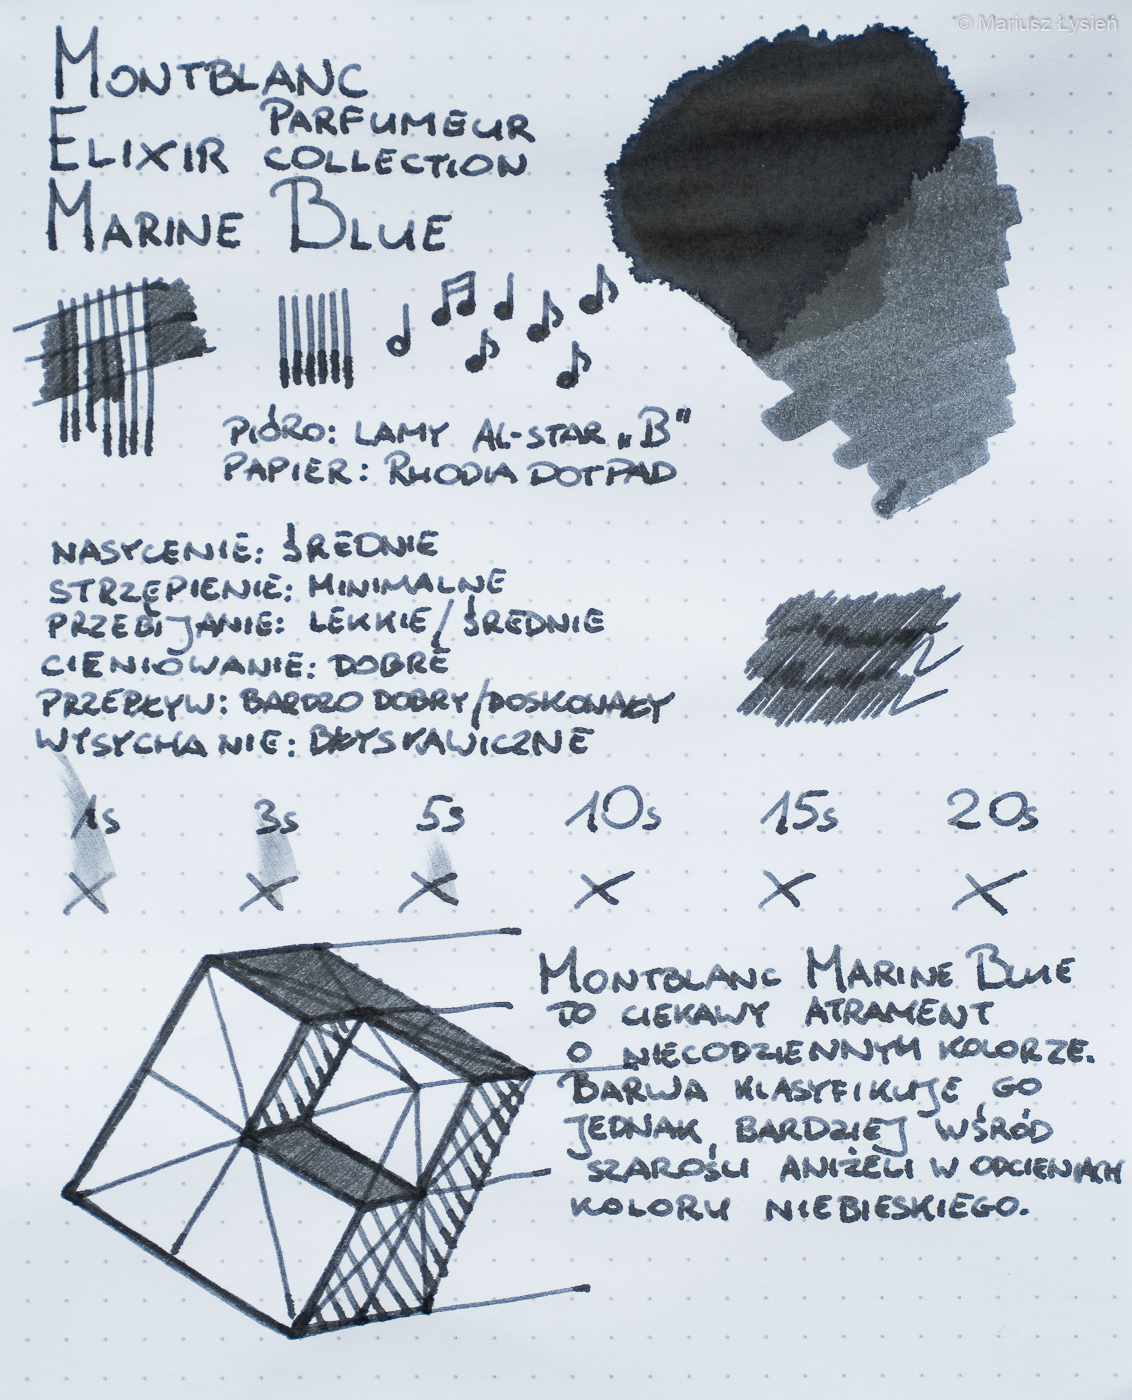 © Mariusz Łysień
MONTBLANC
PARFUMEUR
ELIXIR COLLECTION
MARINE BLUE
PIÓRO: LAMY AL-STAR „B”
PAPIER: RHODIA DOTPAD
NASYCENIE: ŚREDNIE
STRZĘPIENIE: MINIMALNE
PRZEBIJANIE: LEKKIE/ŚREDNIE
CIENIOWANIE: DOBRE
PRZEPŁYW: BARDZO DOBRY/DOSKONAŁY
WYSYCHANIE: BŁYSKAWICZNE
1s 3s 5s 10s 15s 20s
MONTBLANC MARINE BLUE
TO CIEKAWY ATRAMENT
O NIECODZIENNYM KOLORZE.
BARWA KLASYFIKUJE GO
JEDNAK BARDZIEJ WŚRÓD
SZAROŚCI ANIŻELI W ODCIENIACH
KOLORU NIEBIESKIEGO.